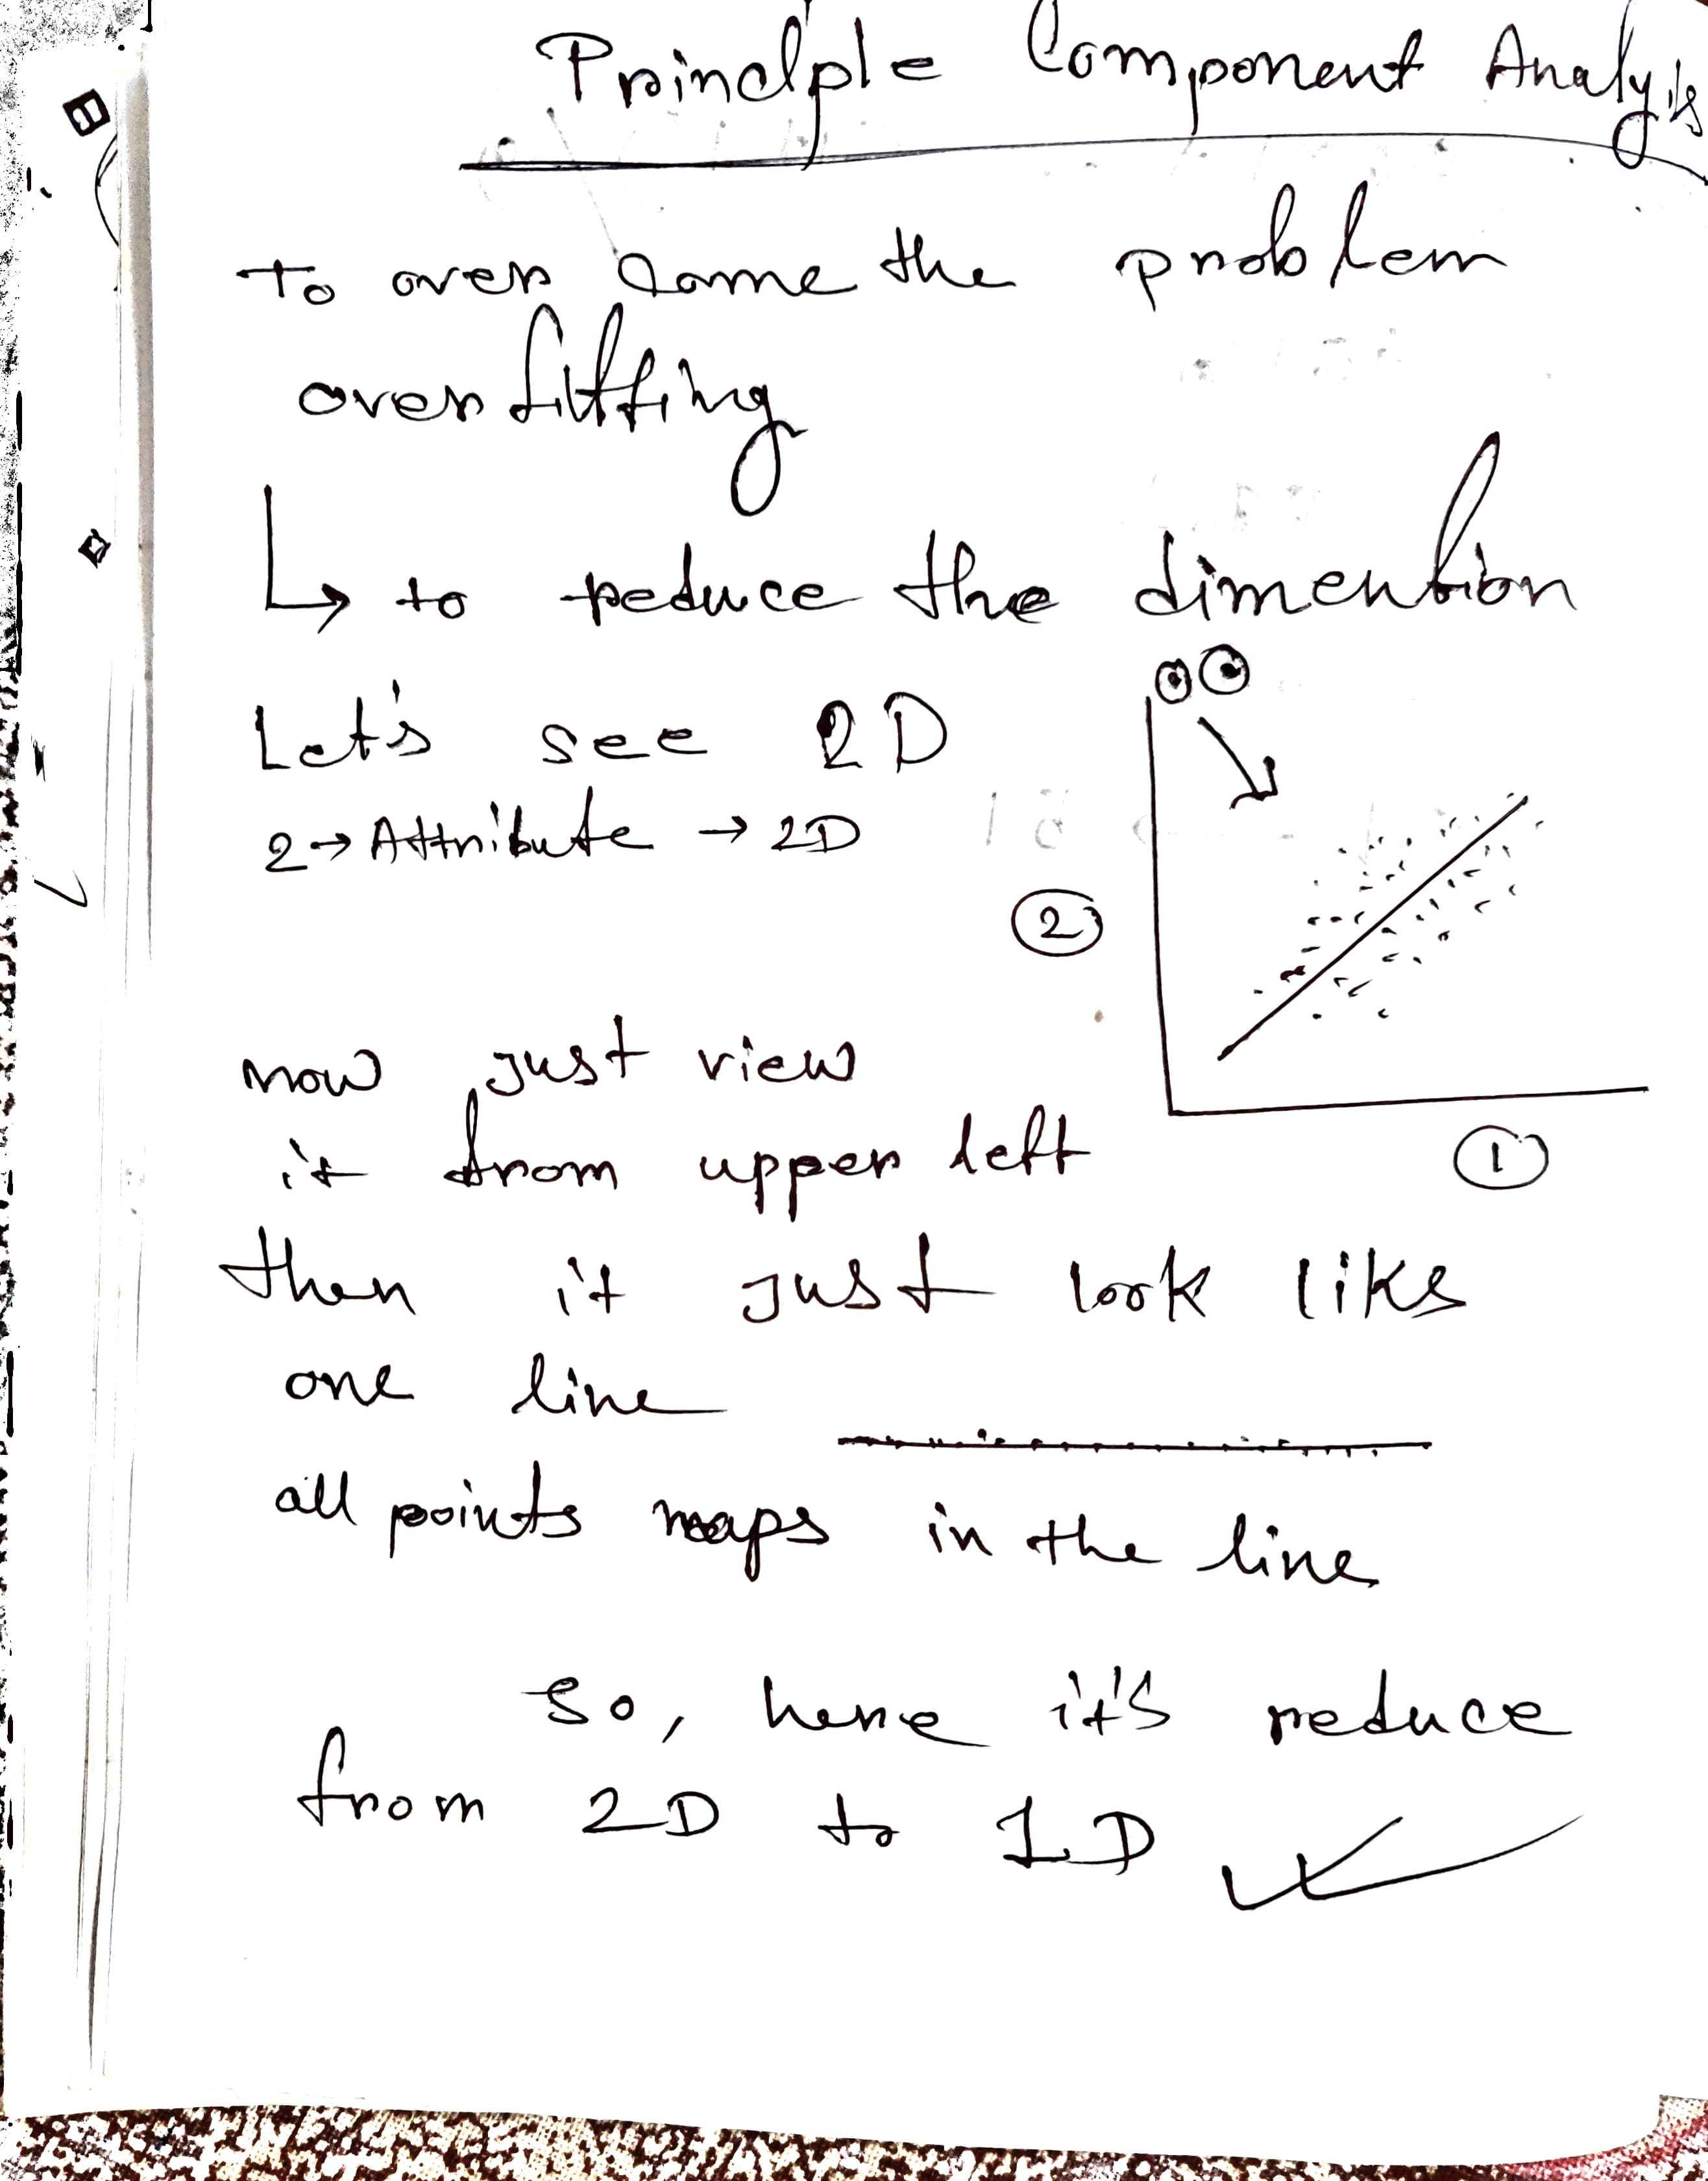 Principle Component Analysis
To over come the problem
over fitting
↳ to reduce the dimention
Let's see 2D
2 → Attribute → 2D
2
now just view
it from upper left
1
then it just look like
one line
all points maps in the line
So, here it's reduce
from 2D to 1D ✓